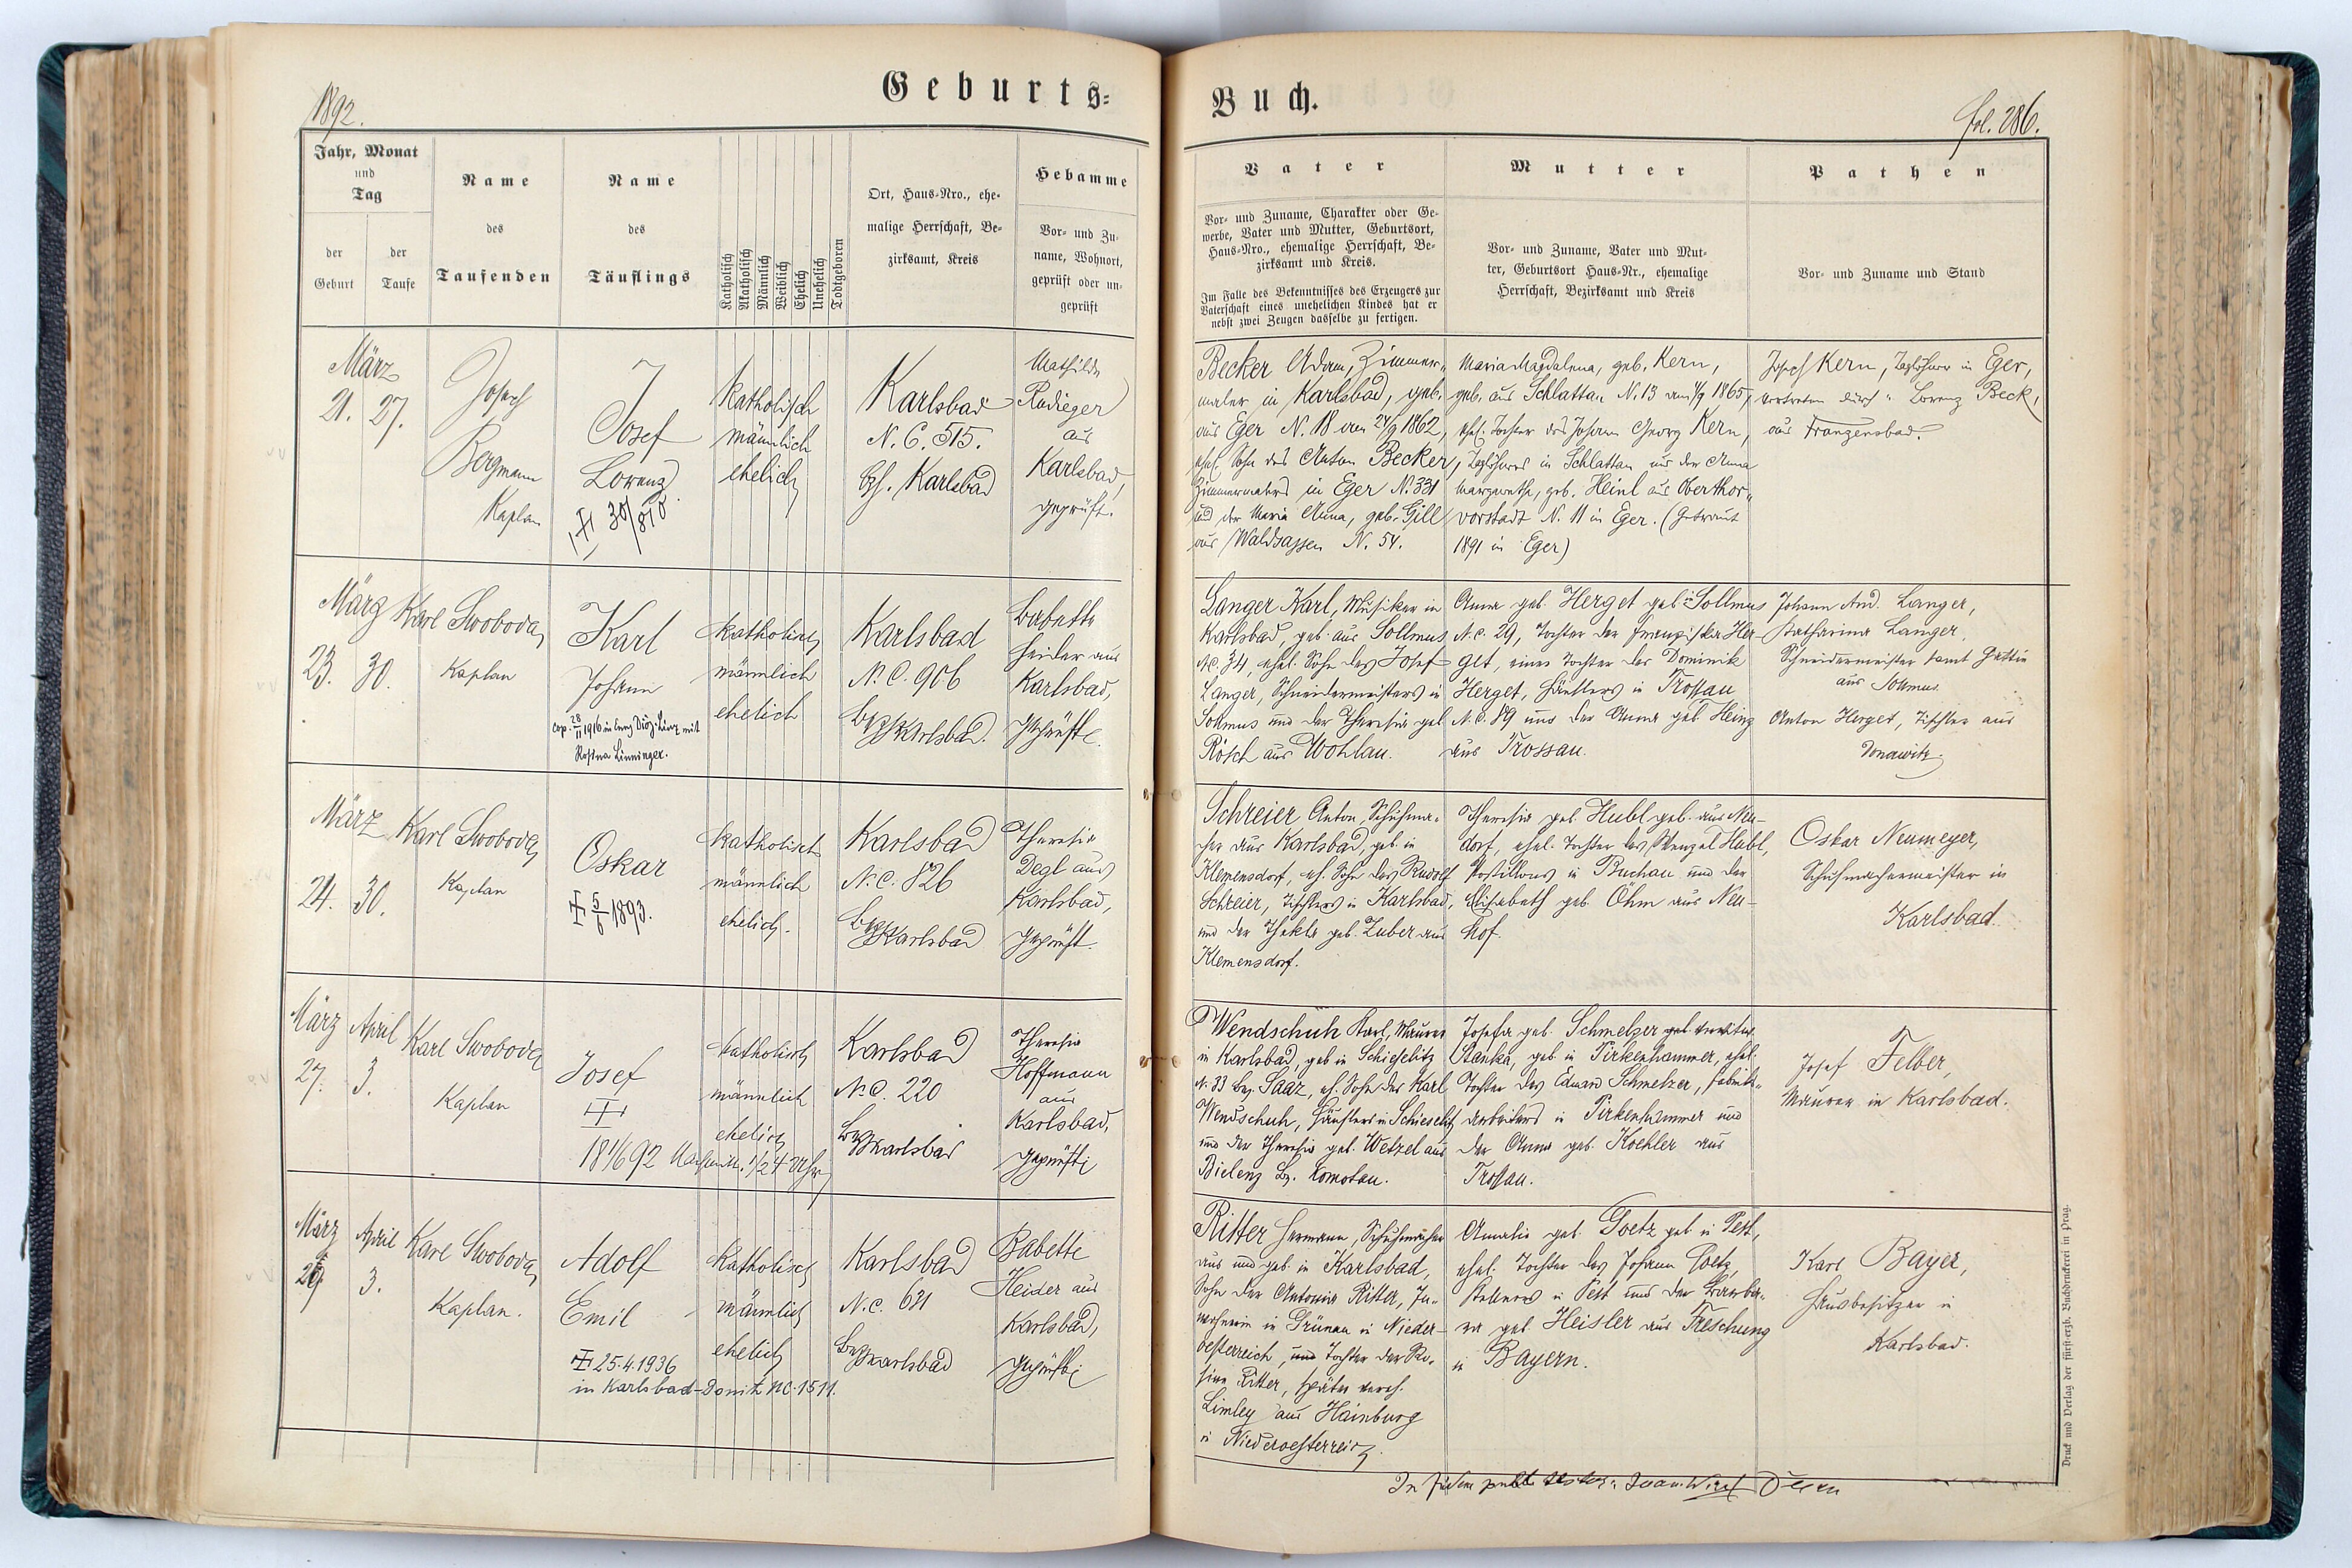 1892.
Geburts=
Jahr, Monat
und
Tag
der
Geburt
der
Taufe
Name
des
Taufenden
Name
des
Täuflings
Katholisch
Akatholisch
Männlich
Weiblich
Ehelich
Unehelich
Todtgeboren
Ort, Haus=Nro., ehe=
malige Herrschaft, Be=
zirksamt, Kreis
Hebamme
Vor= und Zu=
name, Wohnort,
geprüft oder un=
geprüft
März
21. 27.
Josef
Bergmann
Kaplan
Josef
Lorenz
katholisch
männlich
ehelich
Karlsbad
N. C. 515.
Bz. Karlsbad
Mathilde
Rudieger
aus
Karlsbad,
geprüft.
März
23. 30.
Karl Swoboda,
Kaplan
Karl
Johann
cop. 28/II 1916 in Enns Diöz. Linz mit
Rosina Linninger.
katholisch
männlich
ehelich
Karlsbad
N. C. 906
Bez. Karlsbad.
Babette
Heider aus
Karlsbad,
geprüft.
März
24. 30.
Karl Swoboda,
Kaplan
Oskar
5/6 1893.
katholisch
männlich
ehelich.
Karlsbad
N. C. 826
Bez. Karlsbad
Theresia
Degl aus
Karlsbad,
geprüft.
März April
27. 3.
Karl Swoboda
Kaplan
Josef
18 1/6 92 Nachmitt. 1/2 4 Uhr
katholisch
männlich
ehelich
Karlsbad
N. C. 220
Bez. Karlsbad
Theresia
Hoffmann
aus
Karlsbad,
geprüft
März April
3.
Karl Swoboda,
Kaplan.
Adolf
Emil
25.4.1936
in Karlsbad-Donitz NC. 1511.
katholisch
männlich
ehelich
Karlsbad
N. C. 631
Bez. Karlsbad
Babette
Heider aus
Karlsbad,
geprüft
Buch.
fol. 286.
Vater
Vor= und Zuname, Charakter oder Ge=
werbe, Vater und Mutter, Geburtsort,
Haus=Nro., ehemalige Herrschaft, Be=
zirksamt und Kreis.
Im Falle des Bekenntnisses des Erzeugers zur
Vaterschaft eines unehelichen Kindes hat er
nebst zwei Zeugen dasselbe zu fertigen.
Mutter
Vor= und Zuname, Vater und Mut=
ter, Geburtsort Haus=Nr., ehemalige
Herrschaft, Bezirksamt und Kreis
Pathen
Vor= und Zuname und Stand
Becker Adam, Zimmer=
maler in Karlsbad, geb.
aus Eger N. 18 am 24/9 1862,
ehel. Sohn des Anton Becker,
in Eger N. 331
und der Maria Anna, geb. Gill
aus Waldsassen N. 54.
Maria Magdalena, geb. Kern,
geb. aus Schlattau N. 13 am 1/9 1865,
ehel. Tochter des Johann Georg Kern,
Taglöhners in Schlattau und der Anna
Margaretha, geb. Heinl aus Oberthor=
vorstadt N. 11 in Eger. (Getraut
1891 in Eger)
Josef Kern, Taglöhner in Eger,
vertreten durch Lorenz Beck,
aus Franzensbad.
Langer Karl, Musiker in
Karlsbad, geb. aus Sollmus
N. C. 34, ehel. Sohn des Josef
Langer, Schneidermeisters in
Sollmus und der Theresia geb.
Rösch aus Wohlau.
Anna geb. Herget geb. in Sollmus
N. C. 29, Tochter der Franziska Her=
get, einer Tochter des Dominik
Herget, Häuslers in Trossau
N. C. 89 und der Anna geb. Heinz
aus Trossau.
Johann And. Langer,
Katharina Langer,
Schneidermeister samt Gattin
aus Sollmus.
Anton Herget, Tischler aus
Donawitz.
Schreier Anton, Schuhma=
cher aus Karlsbad, geb. in
Klemensdorf, eh. Sohn des Rudolf
Schreier, Tischlers in Karlsbad,
und der Thekla geb. Zuber aus
Klemensdorf.
Theresia geb. Hubl geb. aus Neu=
dorf, ehel. Tochter des Wenzel Hubl,
Postillons in Buchau und der
Elisabeth geb. Öhm aus Neu=
hof.
Oskar Neumeyer,
Schuhmachermeister in
Karlsbad.
Wendschuh Karl, Maurer
in Karlsbad, geb. in Schieselitz
N. 33 Bez. Saaz, eh. Sohn des Karl
Wendschuh, Häuslers in Schieselitz
und der Theresia geb. Wetzel aus
Bielenz Bz. Komotau.
Josefa geb. Schmelzer gel. verwitw.
Stanka, geb. in Pirkenhammer, ehel.
Tochter des Eduard Schmelzer, Fabriks=
arbeiters in Pirkenhammer und
der Anna geb. Koehler aus
Trossau.
Josef Felber,
Maurer in Karlsbad.
Ritter Hermann, Schuhmacher
aus und geb. in Karlsbad,
Sohn der Antonia Ritter, In=
wohnerin in Grünau in Nieder=
oesterreich, Tochter der Ro=
sina Ritter, später verehl.
Limley aus Hainburg
in Niederoesterreich.
Amalie geb. Goetz geb. in Pest,
ehel. Tochter des Johann Goetz,
Kellners in Pest und der Barba=
ra geb. Heisler aus Treschung
in Bayern.
Karl Bayer,
Hausbesitzer in
Karlsbad.
Druck und Verlag der fürst=erzb. Buchdruckerei in Prag.